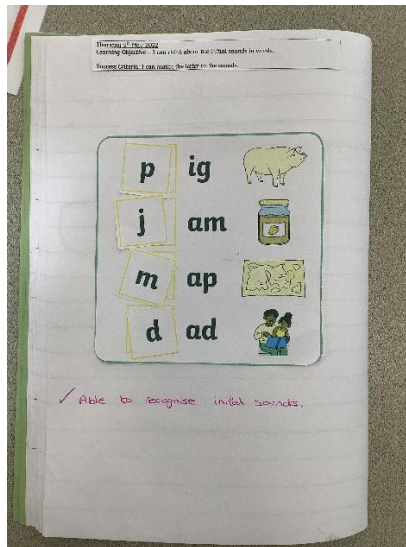 Thursday 5th May 2022
Learning Objective – I can think about the initial sounds in words.
Success Criteria: I can match the letter to the sounds.
p ig
j am
m ap
d ad
✓ Able to recognise initial sounds.